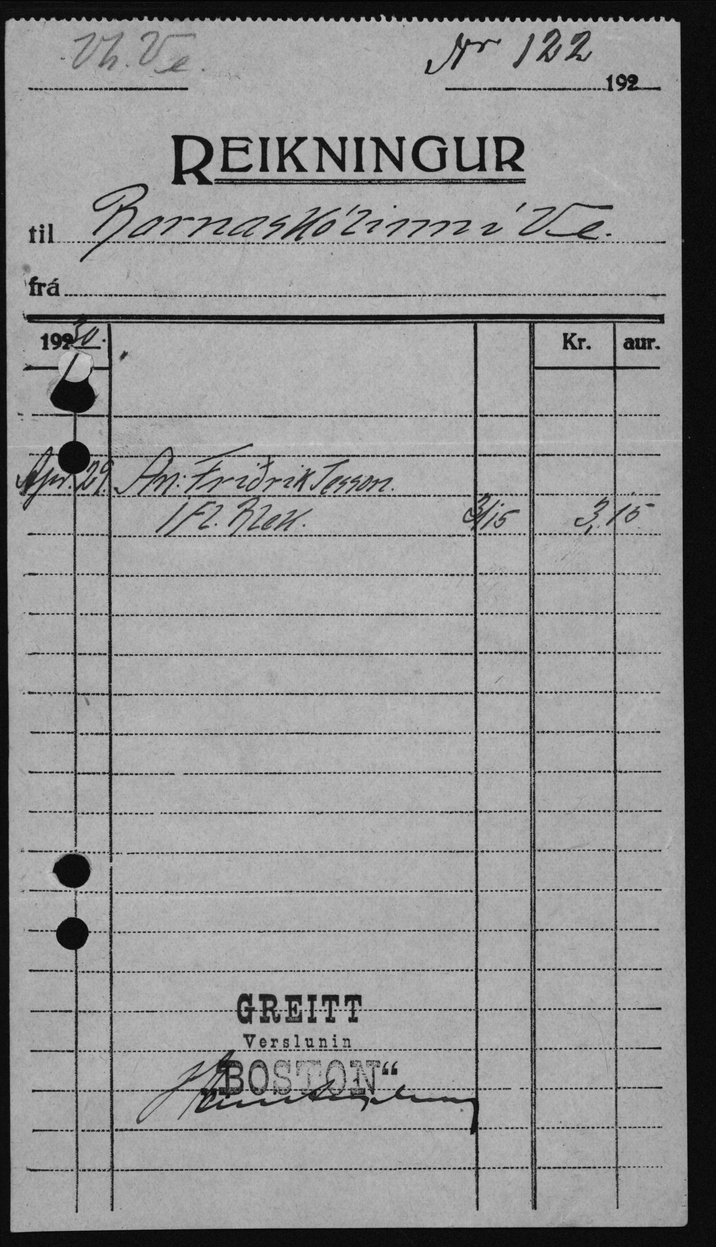 Vh. Ve.
Nr 122
192
REIKNINGUR
til Barnaskólinn í Ve.
frá
1930. Kr. aur.
Apr. 29. An: Friðrik Jesson.
1 Fl. Blek. 3/15 3,15
GREITT
Verslunin
„BOSTON“